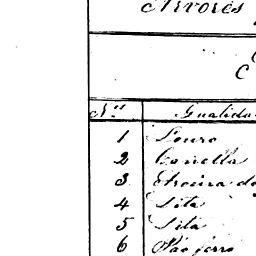 Arvores
C
N.os Qualida
1 Louro
2 Canella
3 Aroeira do
4 Dita
5 Dita
6 Páo ferro